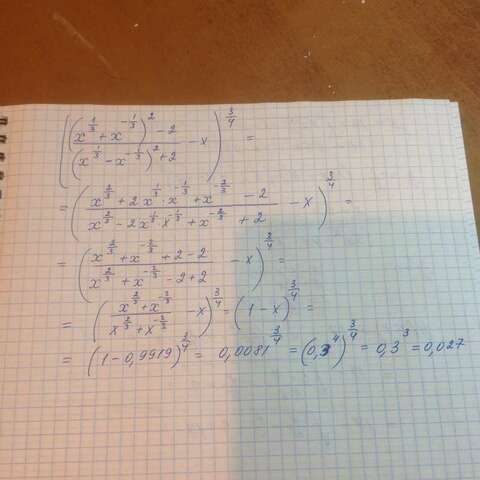 (((x^(1/3) + x^(-1/3))^2 - 2)/((x^(1/3) - x^(-1/3))^2 + 2) - x)^(3/4) =
= ((x^(2/3) + 2x^(1/3)·x^(-1/3) + x^(-2/3) - 2)/(x^(2/3) - 2x^(1/3)·x^(-1/3) + x^(-2/3) + 2) - x)^(3/4) =
= ((x^(2/3) + x^(-2/3) + 2 - 2)/(x^(2/3) + x^(-2/3) - 2 + 2) - x)^(3/4) =
= ((x^(2/3) + x^(-2/3))/(x^(2/3) + x^(-2/3)) - x)^(3/4) = (1 - x)^(3/4) =
= (1 - 0,9919)^(3/4) = 0,0081^(3/4) = (0,3^4)^(3/4) = 0,3^3 = 0,027